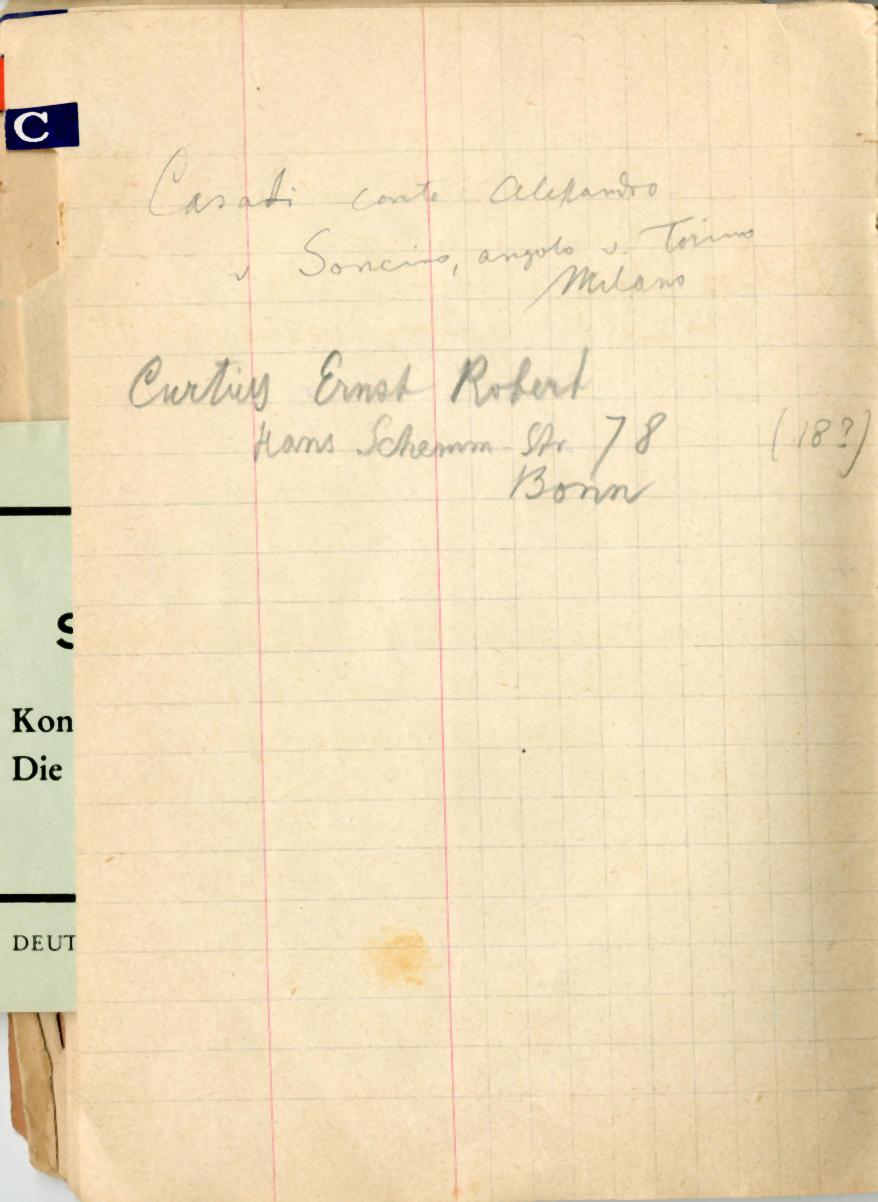 C
Casati conte Alessandro
v Soncino, angolo v. Torino
Milano
Curtius Ernst Robert
Hans Schemm Str 78 (18?)
Bonn
S
Kon
Die
DEUT